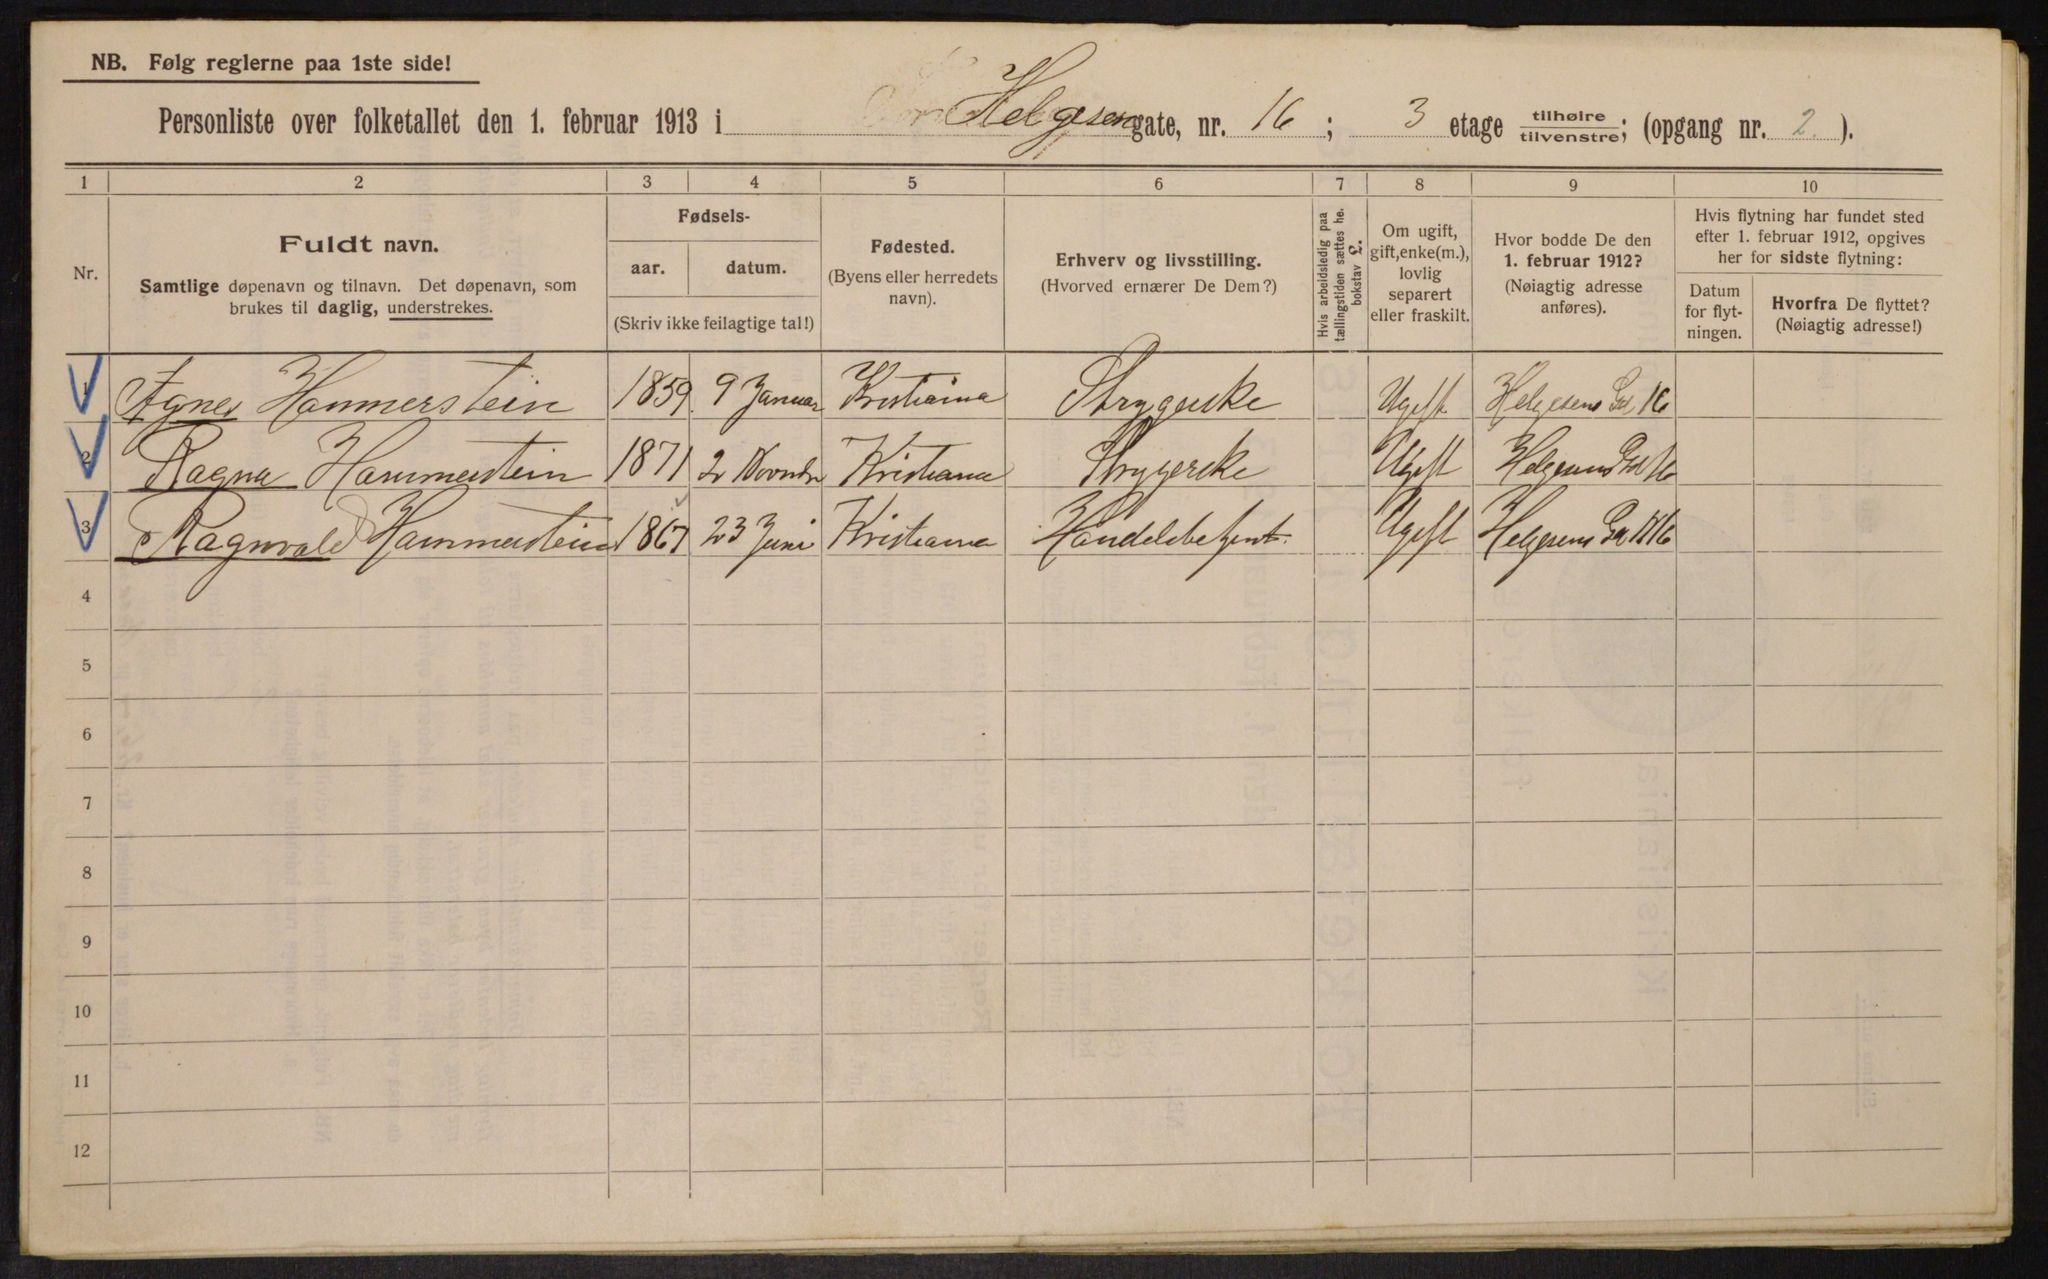 NB. Følg reglerne paa 1ste side!
Personliste over folketallet den 1. februar 1913 i Helgesens gate, nr. 16 ; 3 etage tilhøire tilvenstre ; (opgang nr. 2. ).
1 2 3 4 5 6 7 8 9 10
Nr.
Fuldt navn.
Samtlige døpenavn og tilnavn. Det døpenavn, som
brukes til daglig, understrekes.
Fødsels-
aar. datum.
(Skriv ikke feilagtige tal!)
Fødested.
(Byens eller herredets
navn).
Erhverv og livsstilling.
(Hvorved ernærer De Dem?)
Hvis arbeidsledig paa
tællingstiden sættes he.
bokstav L.
Om ugift,
gift, enke(m.),
lovlig
separert
eller fraskilt.
Hvor bodde De den
1. februar 1912?
(Nøiagtig adresse
anføres).
Hvis flytning har fundet sted
efter 1. februar 1912, opgives
her for sidste flytning:
Datum
for flyt-
ningen.
Hvorfra De flyttet?
(Nøiagtig adresse!)
1 Agnes Hammerstein 1859 9 Januar Kristiania Strygerske Ugift Helgesens Gd 16
2 Ragna Hammerstein 1871 2 Novmbr Kristiana Strygerske Ugift Helgesens Gd 16
3 Ragnvald Hammerstein 1867 23 Juni Kristiania Handelsbetjent. Ugift Helgesens Gd 16
4
5
6
7
8
9
10
11
12